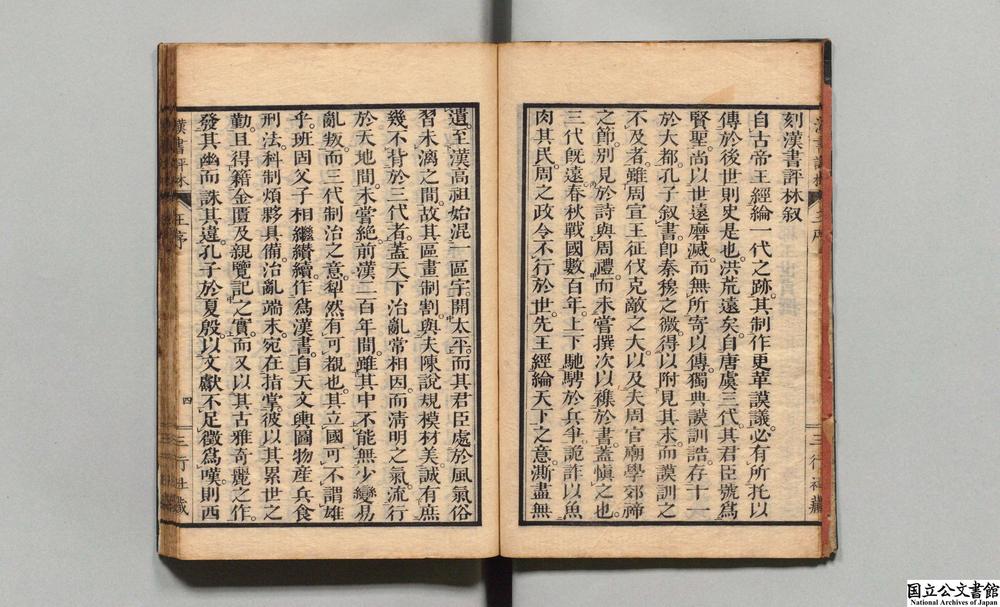 刻漢書評林叙
自古帝王經綸一代之跡其制作更革謨議必有所托以
傳於後世則史是也洪荒遠矣自唐虞三代其君臣號爲
賢聖尚以世遠磨滅而無所寄以傳獨典謨訓誥存十一
於大都孔子叙書即秦穆之微得以附見其末而謨訓之
不及者雖周宣王征伐克敵之大以及夫周官廟學郊禘
之節別見於詩與周禮而未嘗撰次以襍於書蓋愼之也
三代旣遠春秋戰國數百年上下馳騁於兵爭詭詐以魚
肉其民周之政令不行於世先王經綸天下之意澌盡無
遺至漢高祖始混一區宇開太平而其君臣處於風氣俗
習未漓之間故其區畫制割與夫陳說規模材美誠有庶
幾不背於三代者蓋天下治亂常相因而淸明之氣流行
於天地間未嘗絶前漢二百年間雖其中不能無少變易
亂叛而三代制治之意犁然有可覩也其立國可不謂雄
乎班固父子相繼纘續作爲漢書自天文輿圖物產兵食
刑法科制煩夥具備治亂端末宛在指掌彼以其累世之
勤且得籍金匱及親覽記之實而又以其古雅奇麗之作
發其幽而誅其違孔子於夏殷以文獻不足徵爲嘆則西
漢書評林
王序
四
三行社藏
国立公文書館
National Archives of Japan